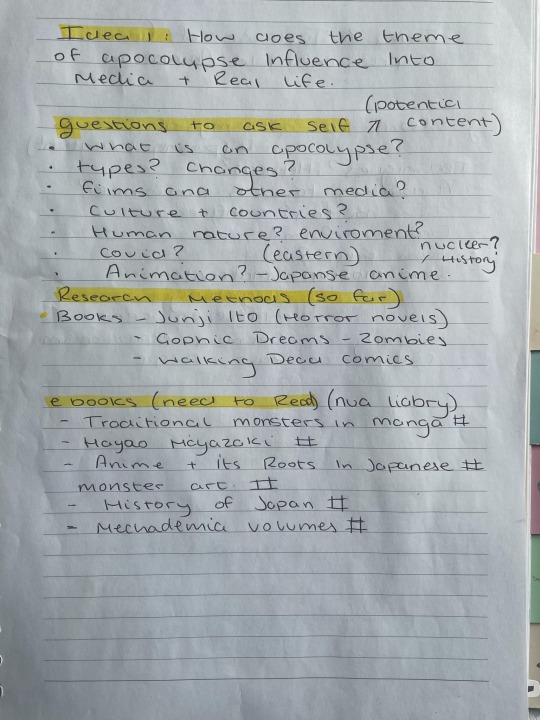 Idea 1: How does the theme
of apocolypse Influence Into
Media + Real life.
(potential
questions to ask self ↗ content)
• What is an apocolypse?
• types? changes?
• films and other media?
• Culture + countries?
• Human nature? enviroment?
• Covid? (eastern) nucleer?
• Animation? - Japanse anime. / History
Research Methods (so far)
• Books - Junji Ito (Horror novels)
- Gophic Dreams - Zombies
- Walking Dead comics
e books (need to Read) (nua liabry)
- Traditional monsters in manga #
- Hayao Miyazaki #
- Anime + its Roots In Japanese #
monster art. #
- History of Japan #
- Mechademia volumes #